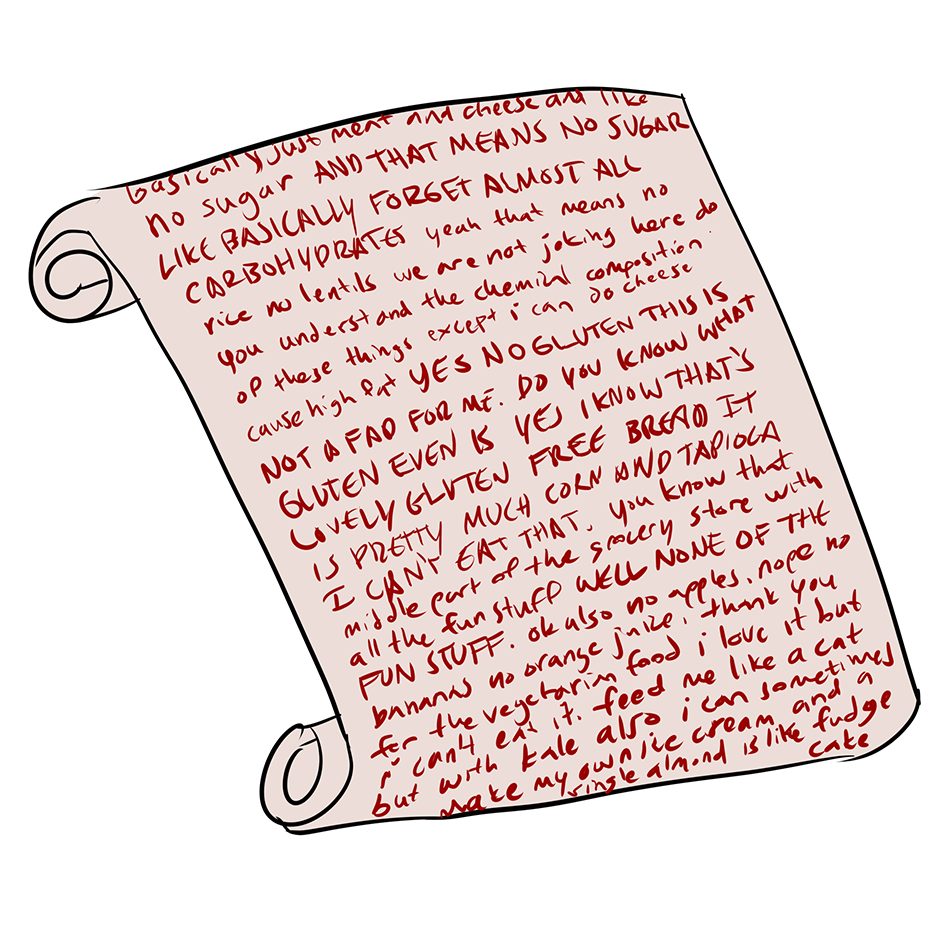 basically just meat and cheese and like
no sugar AND THAT MEANS NO SUGAR
LIKE BASICALLY FORGET ALMOST ALL
CARBOHYDRATES yeah that means no
rice no lentils we are not joking here do
you understand the chemical composition
of these things except i can do cheese
cause high fat YES NO GLUTEN THIS IS
NOT A FAD FOR ME. DO YOU KNOW WHAT
GLUTEN EVEN IS YES I KNOW THAT'S
LOVELY GLUTEN FREE BREAD IT
IS PRETTY MUCH CORN AND TAPIOCA
I CAN'T EAT THAT. you know that
middle part of the grocery store with
all the fun stuff WELL NONE OF THE
FUN STUFF. ok also no apples. nope no
bananas no orange juice, thank you
for the vegetarian food i love it but
i can't eat it. feed me like a cat
but with kale also i can sometimes
make my own ice cream and a
single almond is like fudge
cake